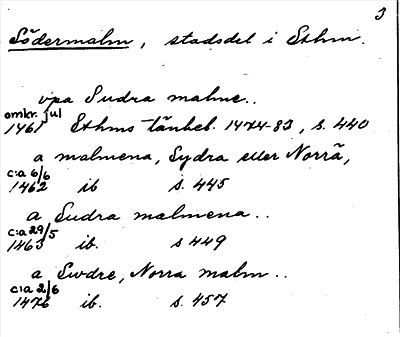 3
Södermalm, stadsdel i Sthm.
vpa Sudra malme..
omkr. jul
1461 Sthms tänkeb. 1474-83, s. 440
a malmena, Sydra eller Norra,
c:a 6/6
1462 ib s. 445
a Sudra malmena..
c:a 29/5
1463 ib. s 449
a Swdre, Norra malm..
c:a 2/6
1476 ib. s. 457